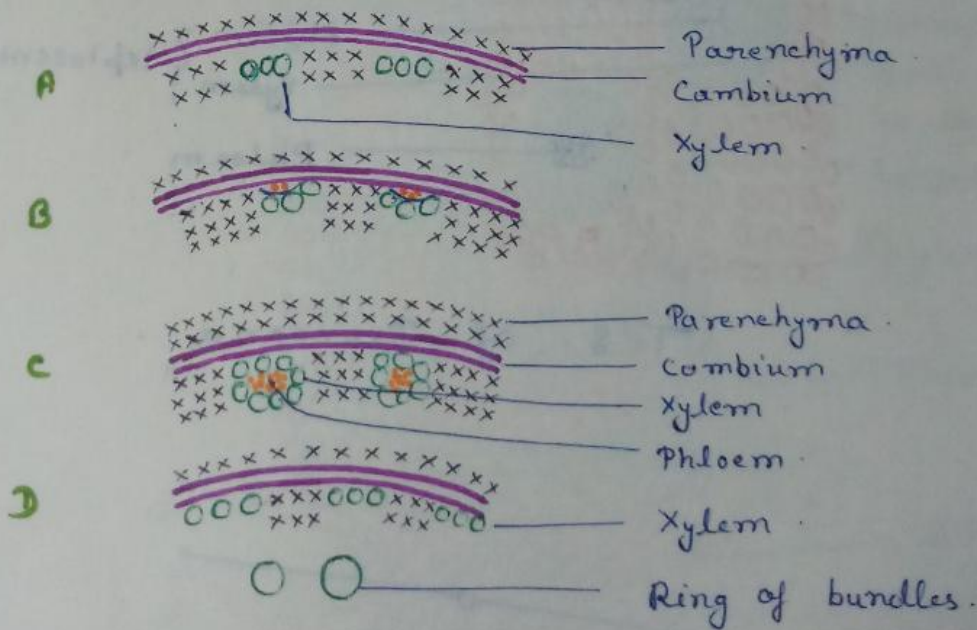 A
Parenchyma.
Cambium
Xylem.
B
C
Parenchyma.
Combium
Xylem
Phloem.
D
Xylem.
Ring of bundles.